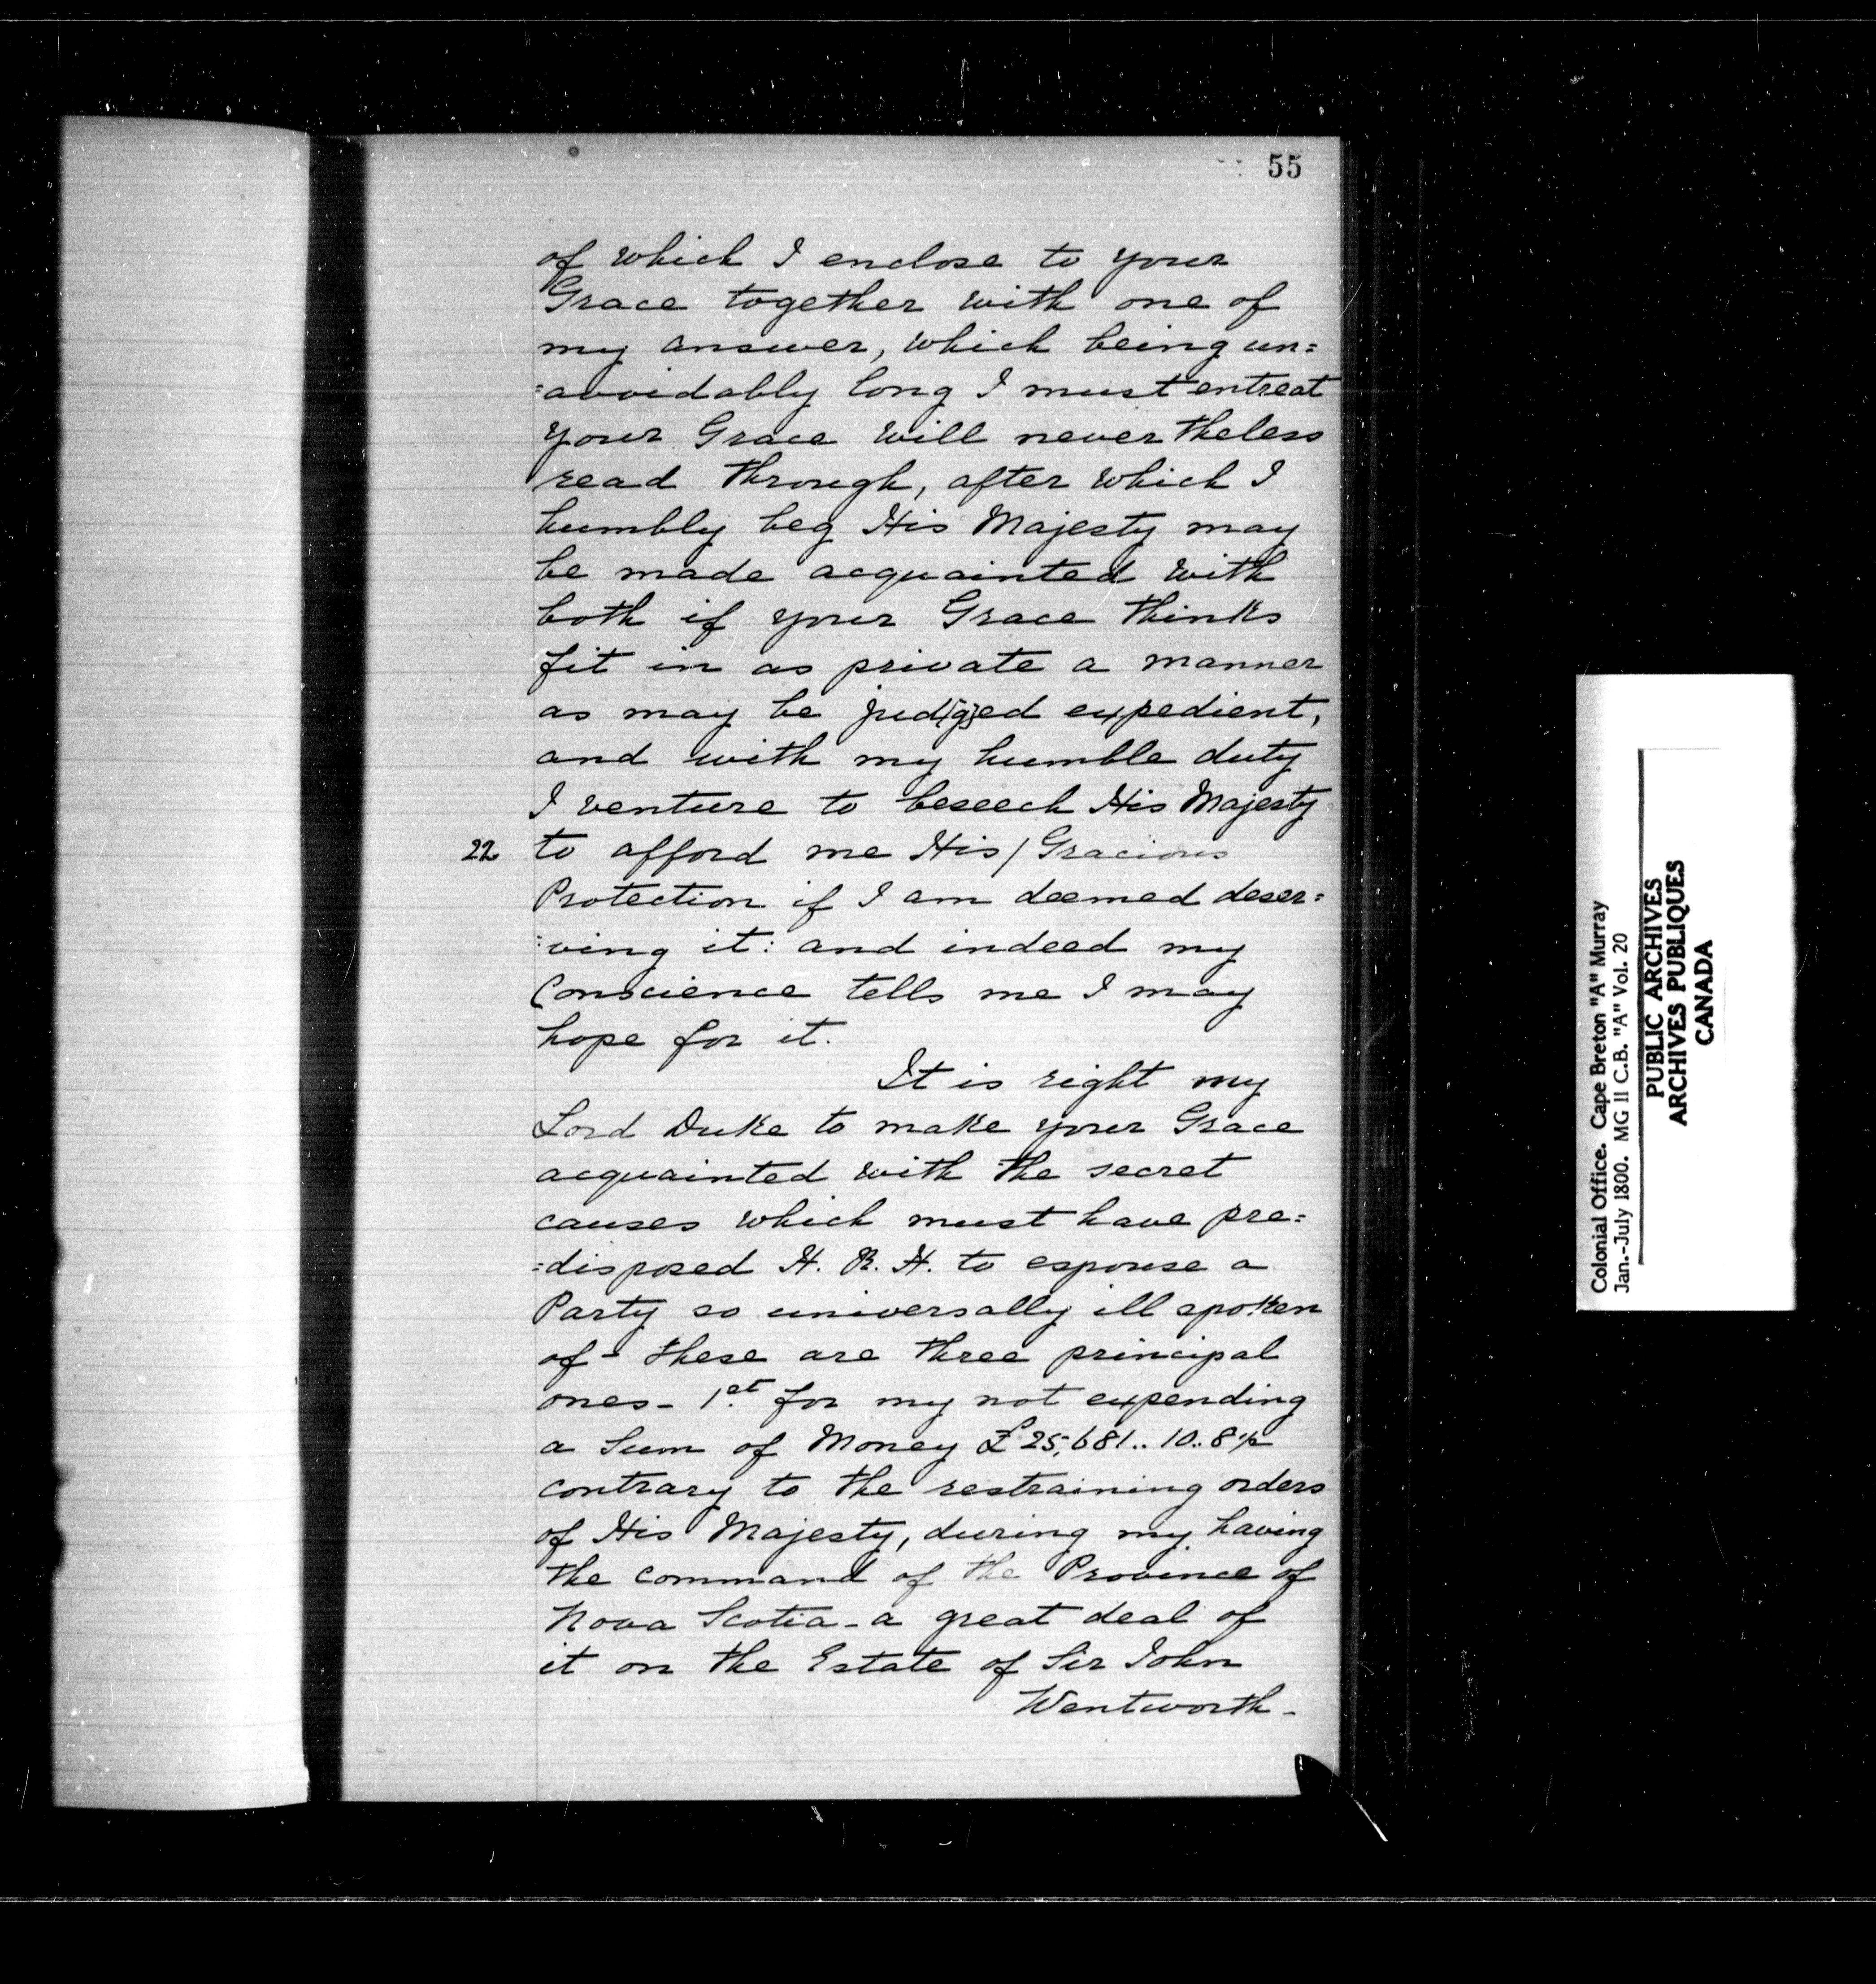 55
of which I enclose to your
Grace together with one of
my answer, which being un=
=avoidably long I must entreat
your Grace will never theless
read through, after which I
humbly beg His Majesty may
be made acquainted with
both if your Grace thinks
fit in as private a manner
as may be jud[g]ed expedient,
and with my humble duty
I venture to beseech His Majesty
22 to afford me His / Gracious
Protection if I am deemed deser=
=ving it: and indeed my
Conscience tells me I may
hope for it.
It is right my
Lord Duke to make your Grace
acquainted with the secret
causes which must have pre=
=disposed H. R. H. to espouse a
Party so universally ill spoken
of - these are three principal
ones - 1st for my not expending
a Sum of Money £25,681.. 10.. 8 1/2
contrary to the restraining orders
of His Majesty, during my having
the command of the Province of
Nova Scotia - a great deal of
it on the Estate of Sir John
Wentworth -
Colonial Office. Cape Breton "A" Murray
Jan.-July 1800. MG 11 C.B. "A" Vol. 20
PUBLIC ARCHIVES
ARCHIVES PUBLIQUES
CANADA